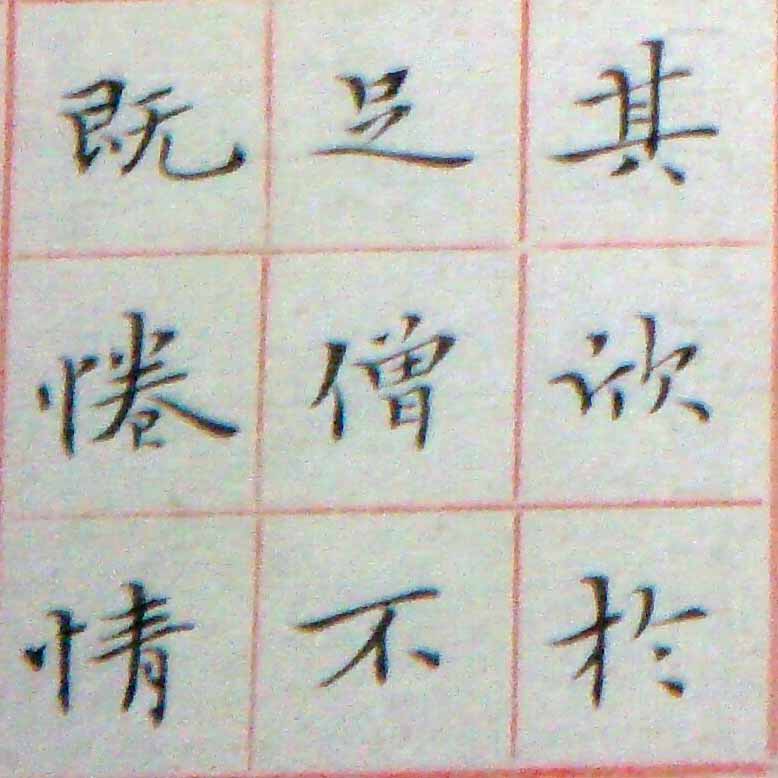 其欣於
足僧不
既惓情